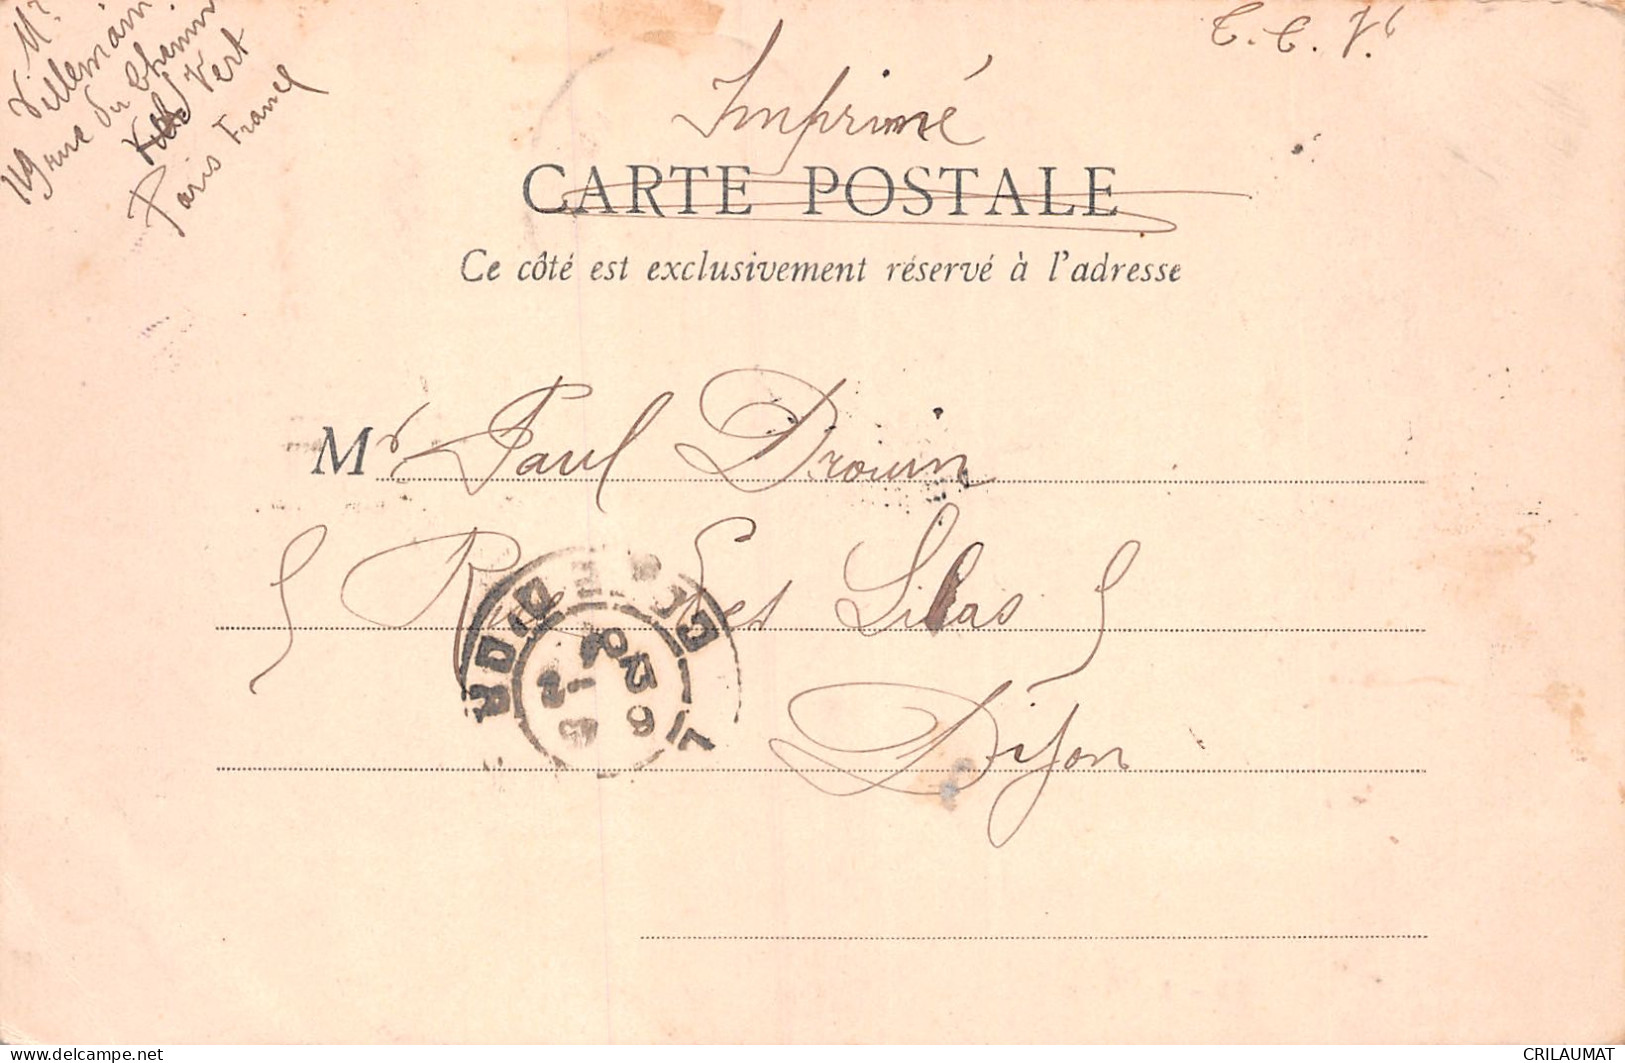 V. Mr
Villemain
119 rue du Chemin
Vert
Paris France
T. C. V.
Imprimé
CARTE POSTALE
Ce côté est exclusivement réservé à l'adresse
Mr Paul Drouin
Rue des Lilas
Dijon
DIJON
COTE D'OR
delcampe.net
CRILAUMAT